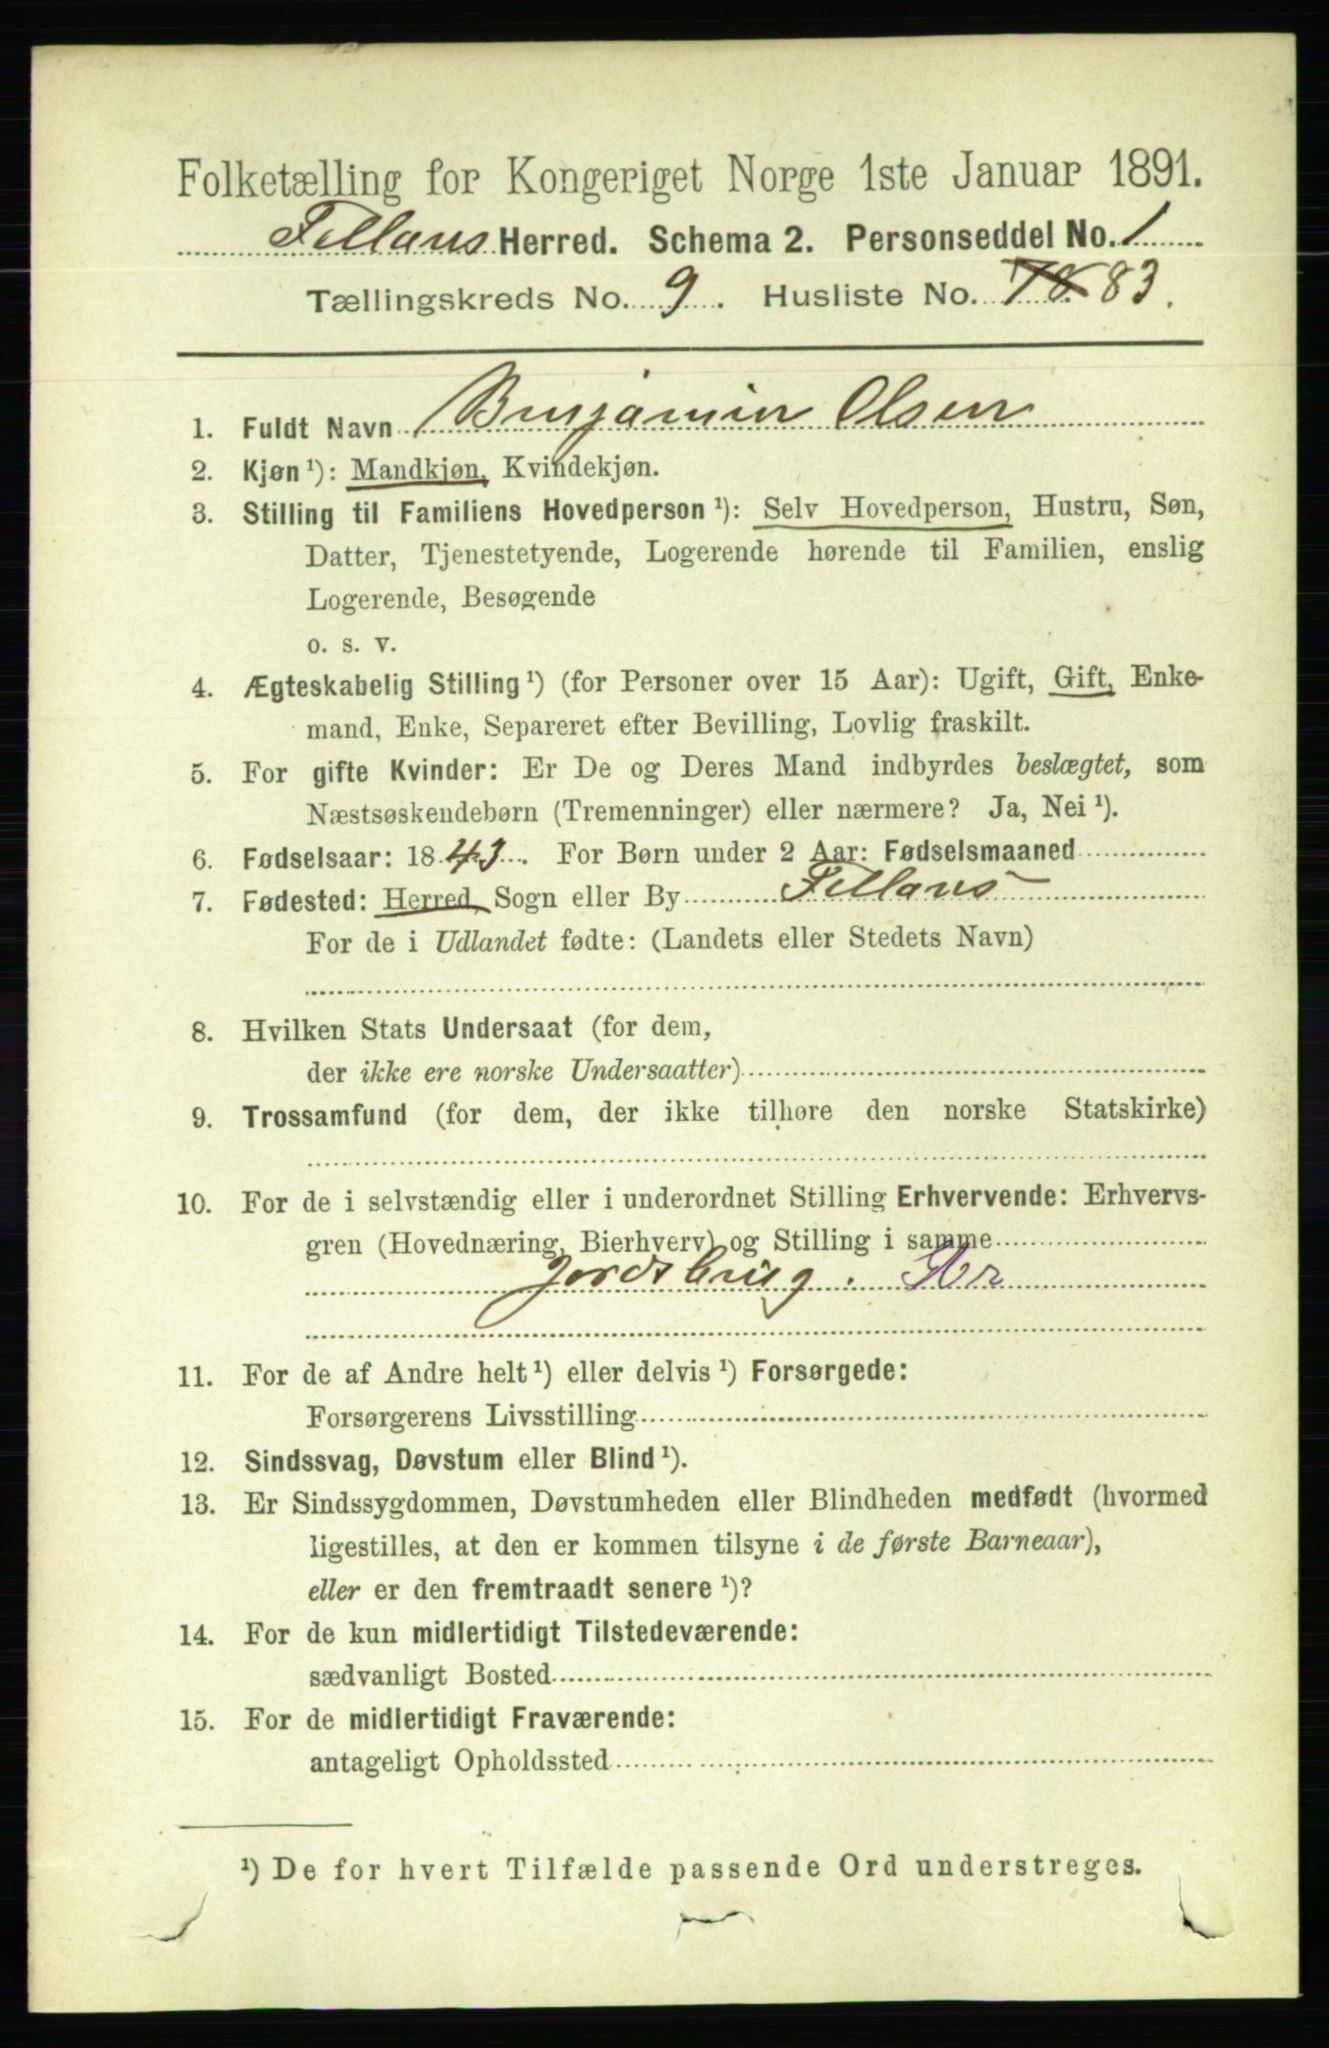 Folketælling for Kongeriget Norge 1ste Januar 1891.
Fillans Herred. Schema 2. Personseddel No. 1
Tællingskreds No. 9. Husliste No. 78 83.
1. Fuldt Navn Benjamin Olsen
2. Kjøn ¹): Mandkjøn, Kvindekjøn.
3. Stilling til Familiens Hovedperson ¹): Selv Hovedperson, Hustru, Søn,
Datter, Tjenestetyende, Logerende hørende til Familien, enslig
Logerende, Besøgende
o. s. v.
4. Ægteskabelig Stilling ¹) (for Personer over 15 Aar): Ugift, Gift, Enke-
mand, Enke, Separeret efter Bevilling, Lovlig fraskilt.
5. For gifte Kvinder: Er De og Deres Mand indbyrdes beslægtet, som
Næstsøskendebørn (Tremenninger) eller nærmere? Ja, Nei ¹).
6. Fødselsaar: 1843. For Børn under 2 Aar: Fødselsmaaned
7. Fødested: Herred, Sogn eller By Fillans
For de i Udlandet fødte: (Landets eller Stedets Navn)
8. Hvilken Stats Undersaat (for dem,
der ikke ere norske Undersaatter)
9. Trossamfund (for dem, der ikke tilhøre den norske Statskirke)
10. For de i selvstændig eller i underordnet Stilling Erhvervende: Erhvervs-
gren (Hovednæring, Bierhverv) og Stilling i samme
Jordsbrug.
11. For de af Andre helt ¹) eller delvis ¹) Forsørgede:
Forsørgerens Livsstilling
12. Sindssvag, Døvstum eller Blind ¹).
13. Er Sindssygdommen, Døvstumheden eller Blindheden medfødt (hvormed
ligestilles, at den er kommen tilsyne i de første Barneaar),
eller er den fremtraadt senere ¹)?
14. For de kun midlertidigt Tilstedeværende:
sædvanligt Bosted
15. For de midlertidigt Fraværende:
antageligt Opholdssted
¹) De for hvert Tilfælde passende Ord understreges.